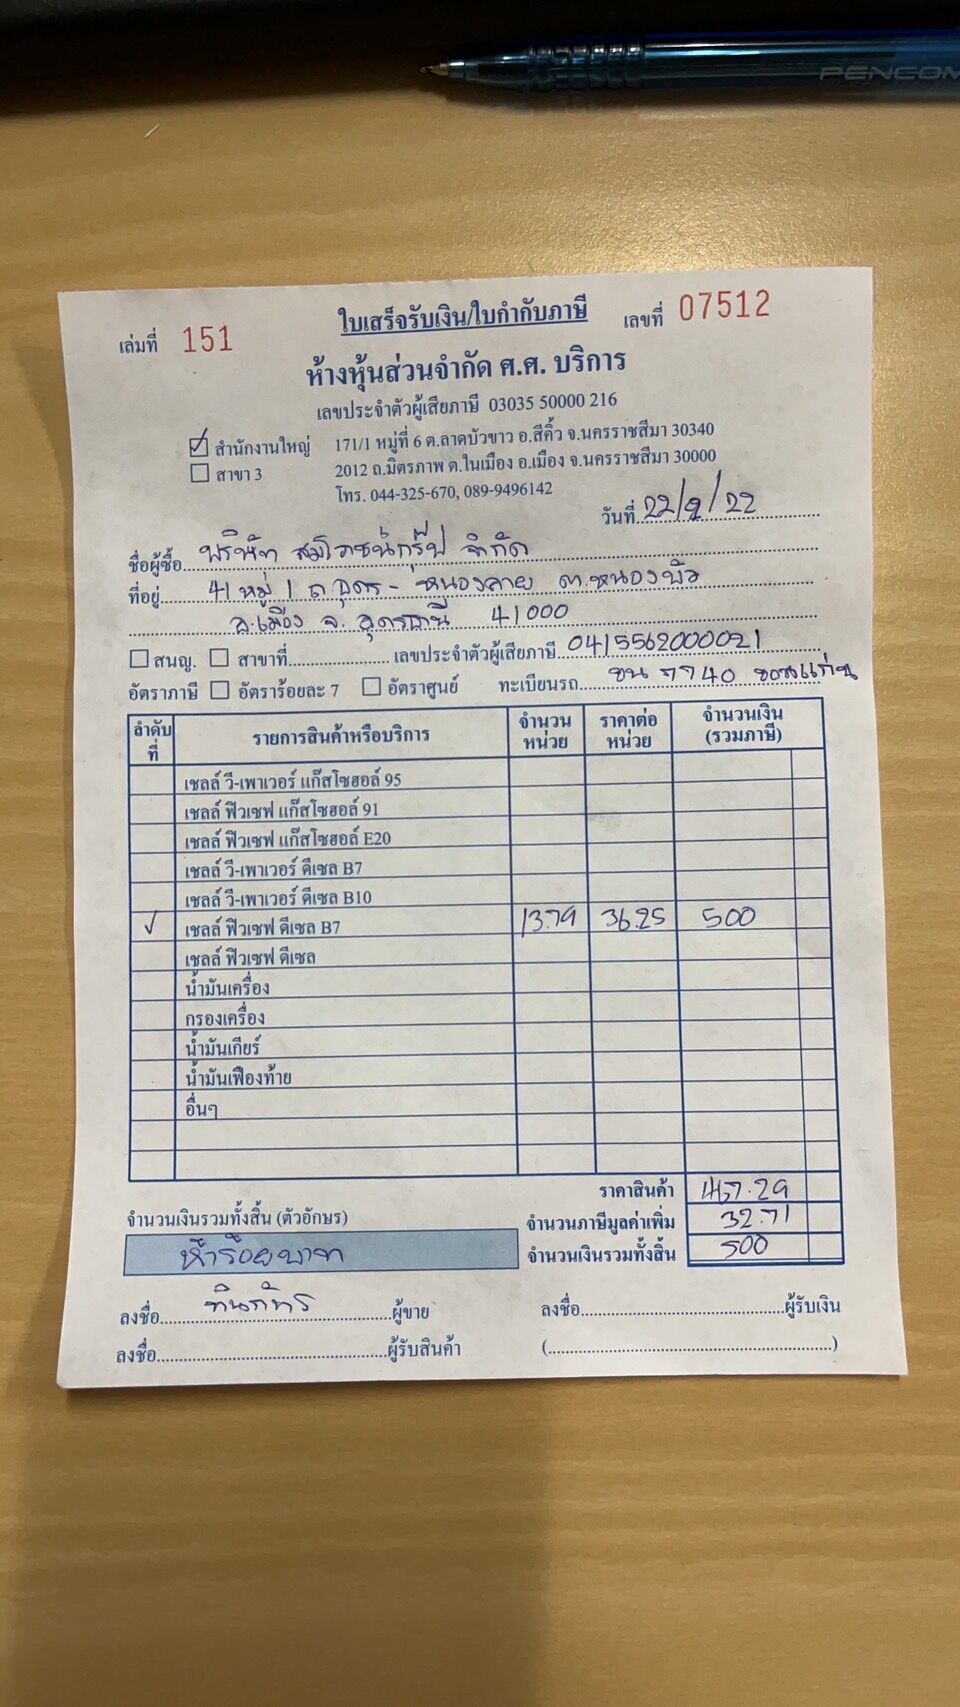 PENCOM
ใบเสร็จรับเงิน/ใบกำกับภาษี
เล่มที่ 151 เลขที่ 07512
ห้างหุ้นส่วนจำกัด ศ.ศ. บริการ
เลขประจำตัวผู้เสียภาษี 03035 50000 216
สำนักงานใหญ่ 171/1 หมู่ที่ 6 ต.ลาดบัวขาว อ.สีคิ้ว จ.นครราชสีมา 30340
สาขา 3 2012 ถ.มิตรภาพ ต.ในเมือง อ.เมือง จ.นครราชสีมา 30000
โทร. 044-325-670, 089-9496142
วันที่ 22/9/22
ชื่อผู้ซื้อ บริษัท สมโภชน์กรุ๊ป จำกัด
ที่อยู่ 41 หมู่ 1 ถ.อุดร - หนองคาย ต.หนองบัว
อ.เมือง จ. อุดรธานี 41000
สนญ. สาขาที่ เลขประจำตัวผู้เสียภาษี 0415562000021
อัตราภาษี อัตราร้อยละ 7 อัตราศูนย์ ทะเบียนรถ 7740 ขอนแก่น
ลำดับที่ รายการสินค้าหรือบริการ จำนวนหน่วย ราคาต่อหน่วย จำนวนเงิน (รวมภาษี)
เชลล์ วี-เพาเวอร์ แก๊สโซฮอล์ 95
เชลล์ ฟิวเซฟ แก๊สโซฮอล์ 91
เชลล์ ฟิวเซฟ แก๊สโซฮอล์ E20
เชลล์ วี-เพาเวอร์ ดีเซล B7
เชลล์ วี-เพาเวอร์ ดีเซล B10
✓ เชลล์ ฟิวเซฟ ดีเซล B7 13.79 36.25 500
เชลล์ ฟิวเซฟ ดีเซล
น้ำมันเครื่อง
กรองเครื่อง
น้ำมันเกียร์
น้ำมันเฟืองท้าย
อื่นๆ
ราคาสินค้า 467.29
จำนวนเงินรวมทั้งสิ้น (ตัวอักษร) จำนวนภาษีมูลค่าเพิ่ม 32.71
ห้าร้อยบาท จำนวนเงินรวมทั้งสิ้น 500
ลงชื่อ ผู้ขาย ลงชื่อ ผู้รับเงิน
ลงชื่อ ผู้รับสินค้า ( )